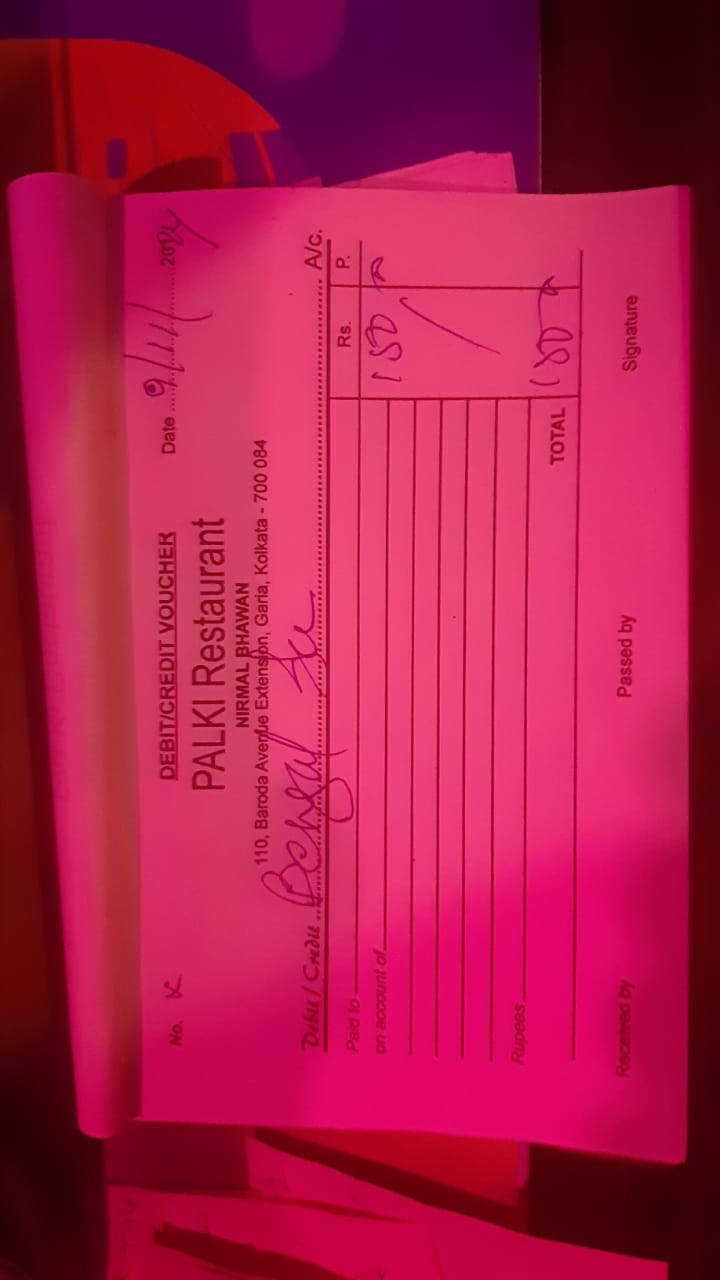 DEBIT/CREDIT VOUCHER
No. Date 9/11/2024
PALKI Restaurant
NIRMAL BHAWAN
110, Baroda Avenue Extension, Garia, Kolkata - 700 084
Debit / Credit Bengal A/c.
Paid to Rs. P.
on account of 150
Rupees
TOTAL 150
Received by Passed by Signature